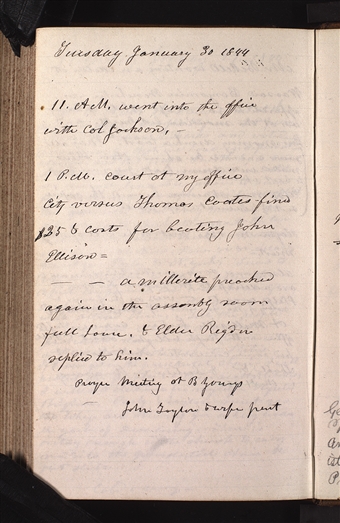 Tuesday January 30 1844
11. A.M. went into the office
with Col Jackson, —
1 P.M. court at my office
City versus Thomas Coates fine
$25 & costs for beating John
Ellison =
— — a millerite preached
again in the assembly room
full house. & Elder Rigdon
replied to him.
Prayer Meeting at B Youngs
— John Taylor & wife present